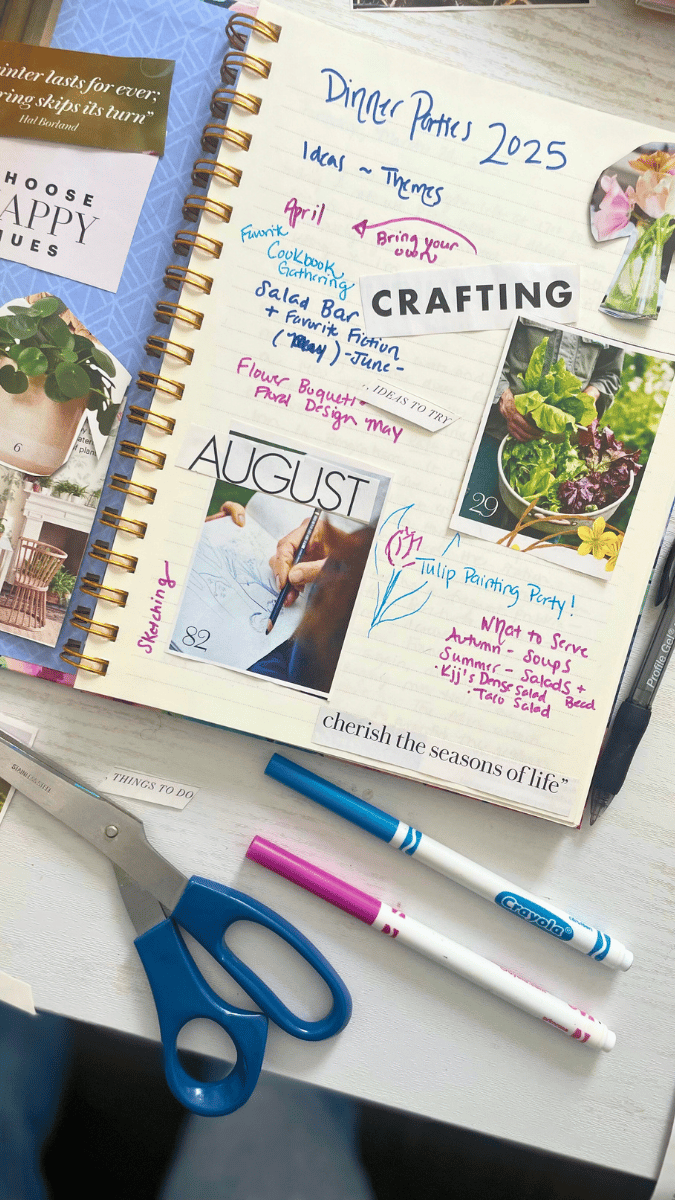 inter lasts for ever;
ring skips its turn”
Hal Borland
HOOSE
APPY
UES
6
Dinner Parties 2025
Ideas ~ Themes
April
Bring your
own
Favorite
Cookbook
Gathering
CRAFTING
Salad Bar
+ Favorite Fiction
(May) - June -
Flower Buquets
Floral Design May
IDEAS TO TRY
AUGUST
29
82
Sketching
Tulip Painting Party!
What to Serve
Autumn - Soups
Summer - Salads +
Bread
Dense Salad
· Taco Salad
cherish the seasons of life”
THINGS TO DO
STAINLESS
Crayola
Profile Gel